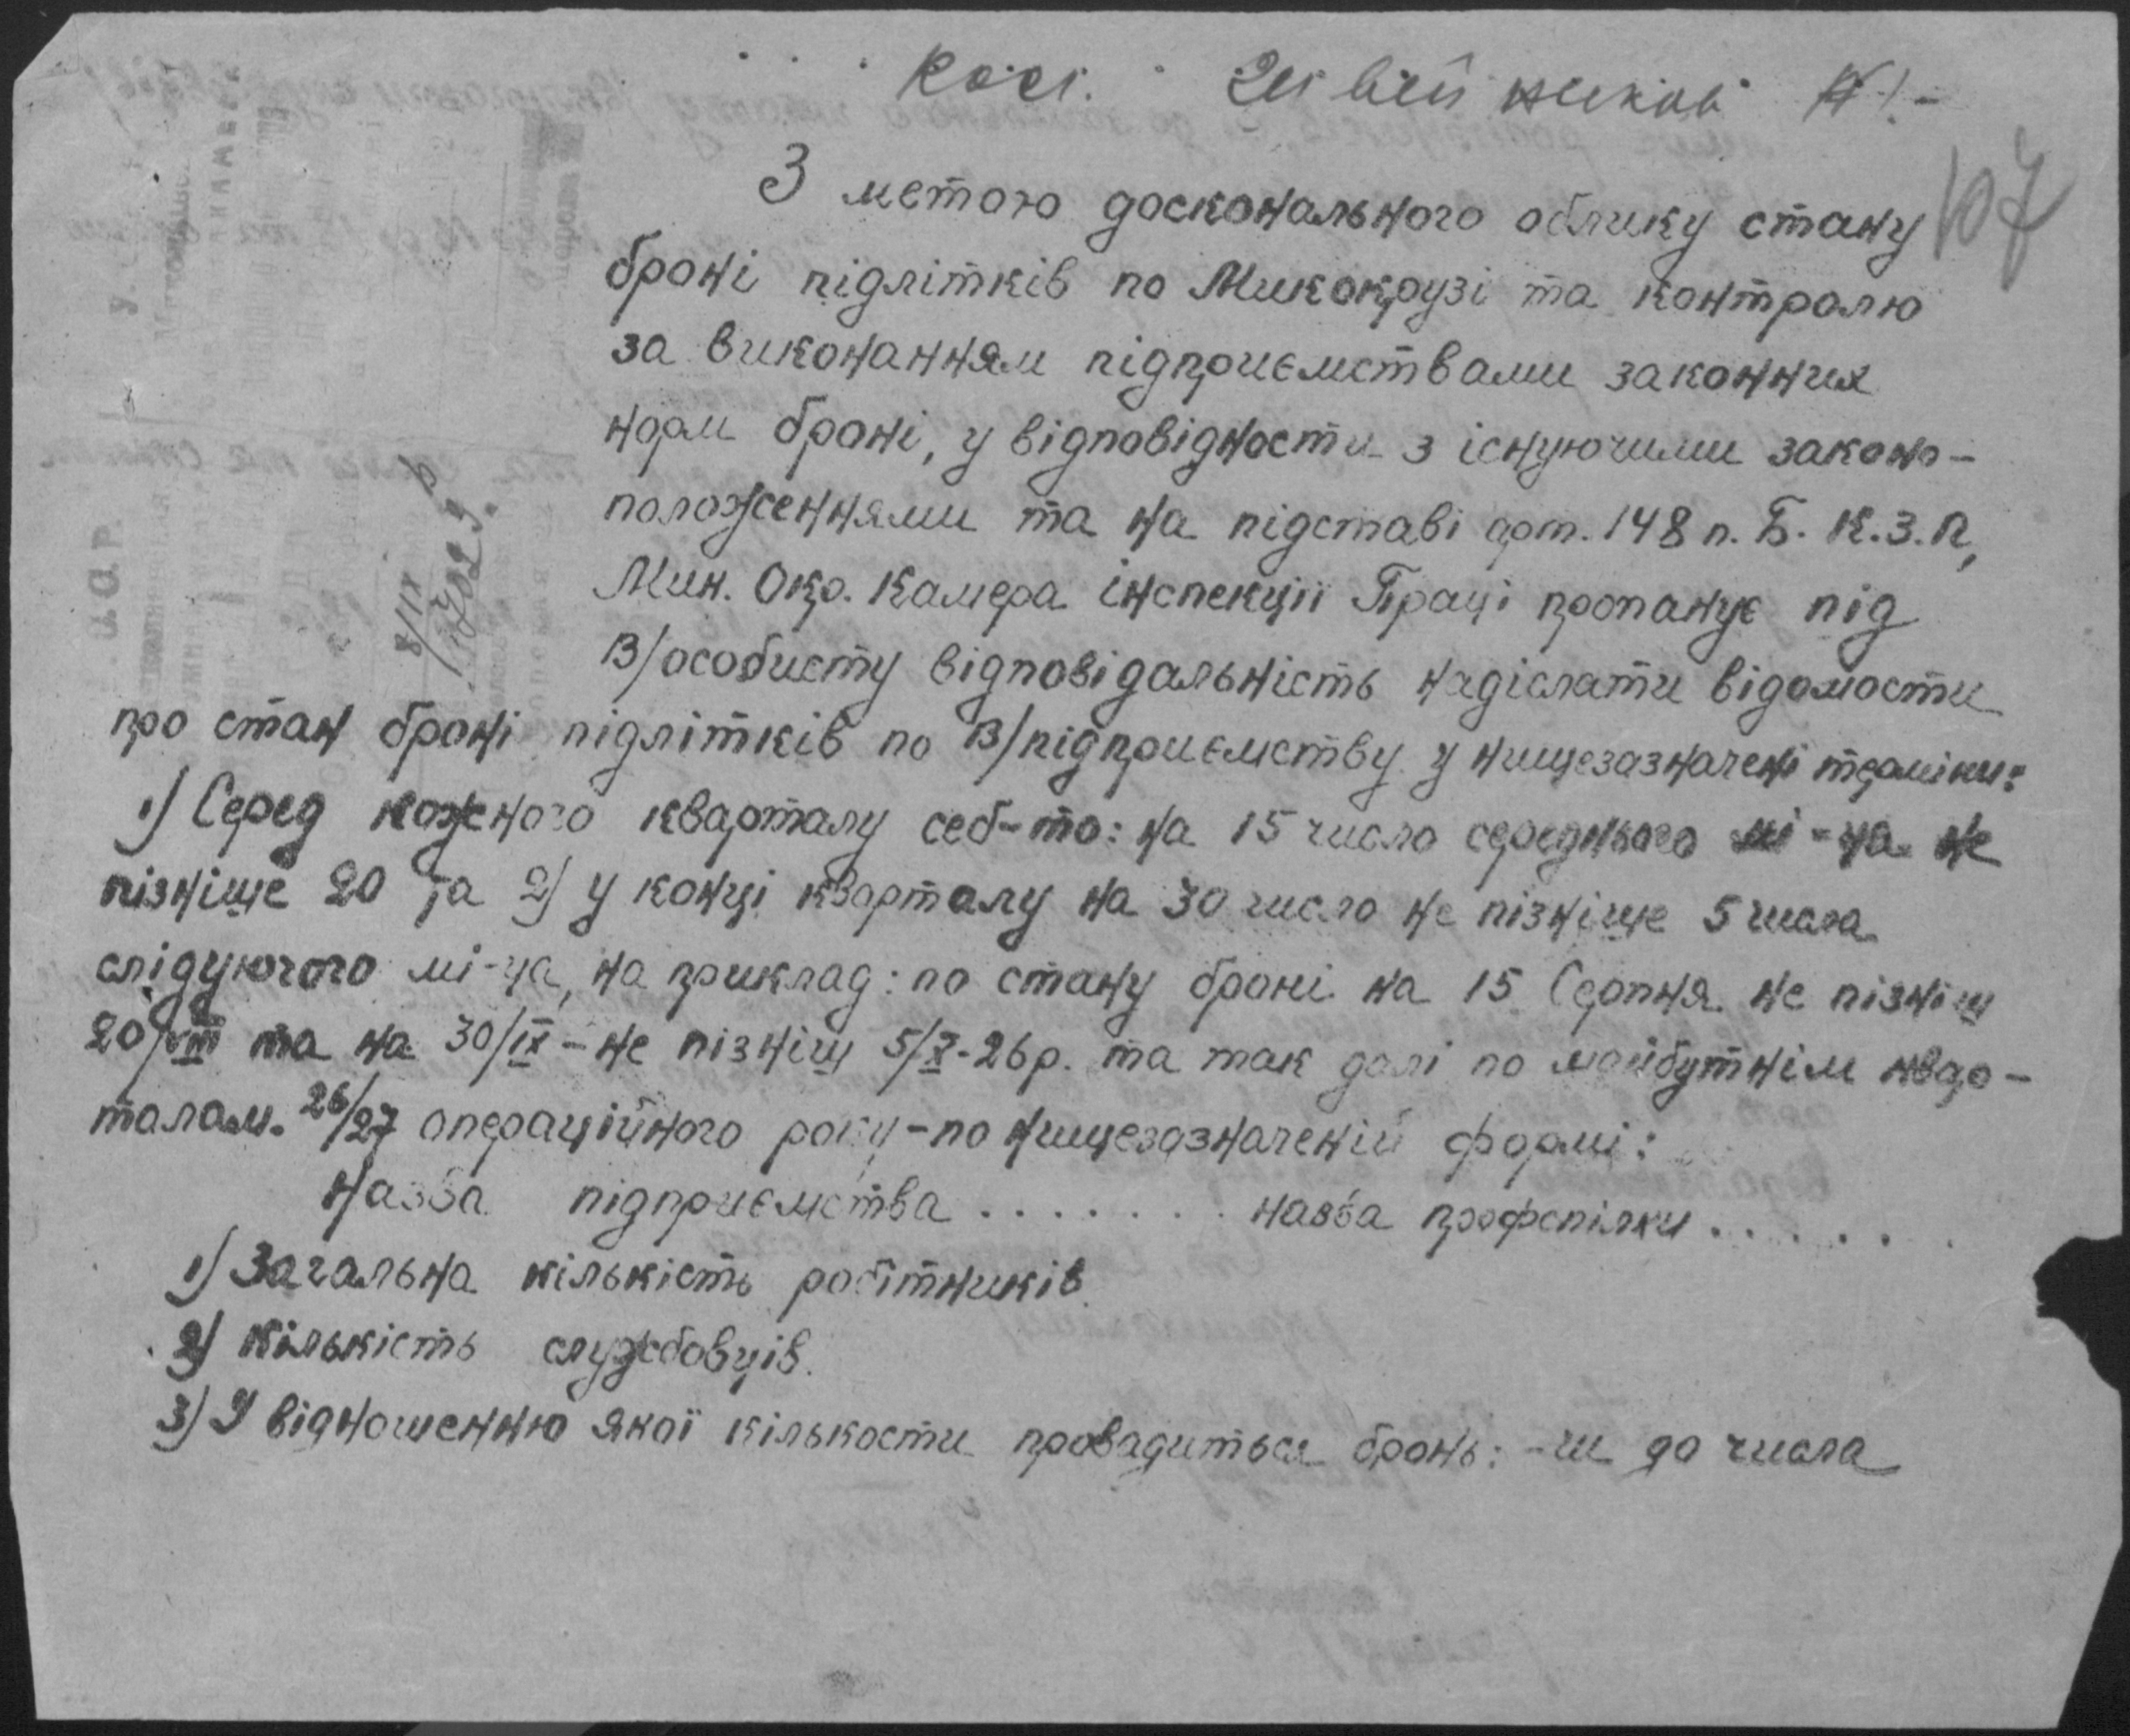 107
З метою досконального обліку стану
броні підлітків по Микокрузі та контролю
за виконанням підприємствами законних
норм броні, у відповідности з існуючими законо-
положеннями та на підставі арт. 148 п. Б. К.З.П,
Мик. Окр. Камера Інспекціі Праці пропанує під
В/особисту відповідальність надіслати відомости
про стан броні підлітків по В/підприємству у нищезазначені терміни:
1) Серед кожного кварталу себ-то: на 15 число середнього мі-ця не
пізніще 20 та 2) у конці кварталу на 30 число не пізніще 5 числа
слідуючого мі-ця, на приклад: по стану броні на 15 Серпня не пізніщ
20/VIII та на 30/IX - не пізніщ 5/X-26р. та так далі по майбутнім квар-
талам 26/27 операційного року - по нищезазначеній формі:
Назва підприємства ....... назва профспілки .....
1) Загальна кількість робітників.
2) Кількість службовців.
3) У відношенню якої кількости провадиться бронь: - чи до числа
8/IX